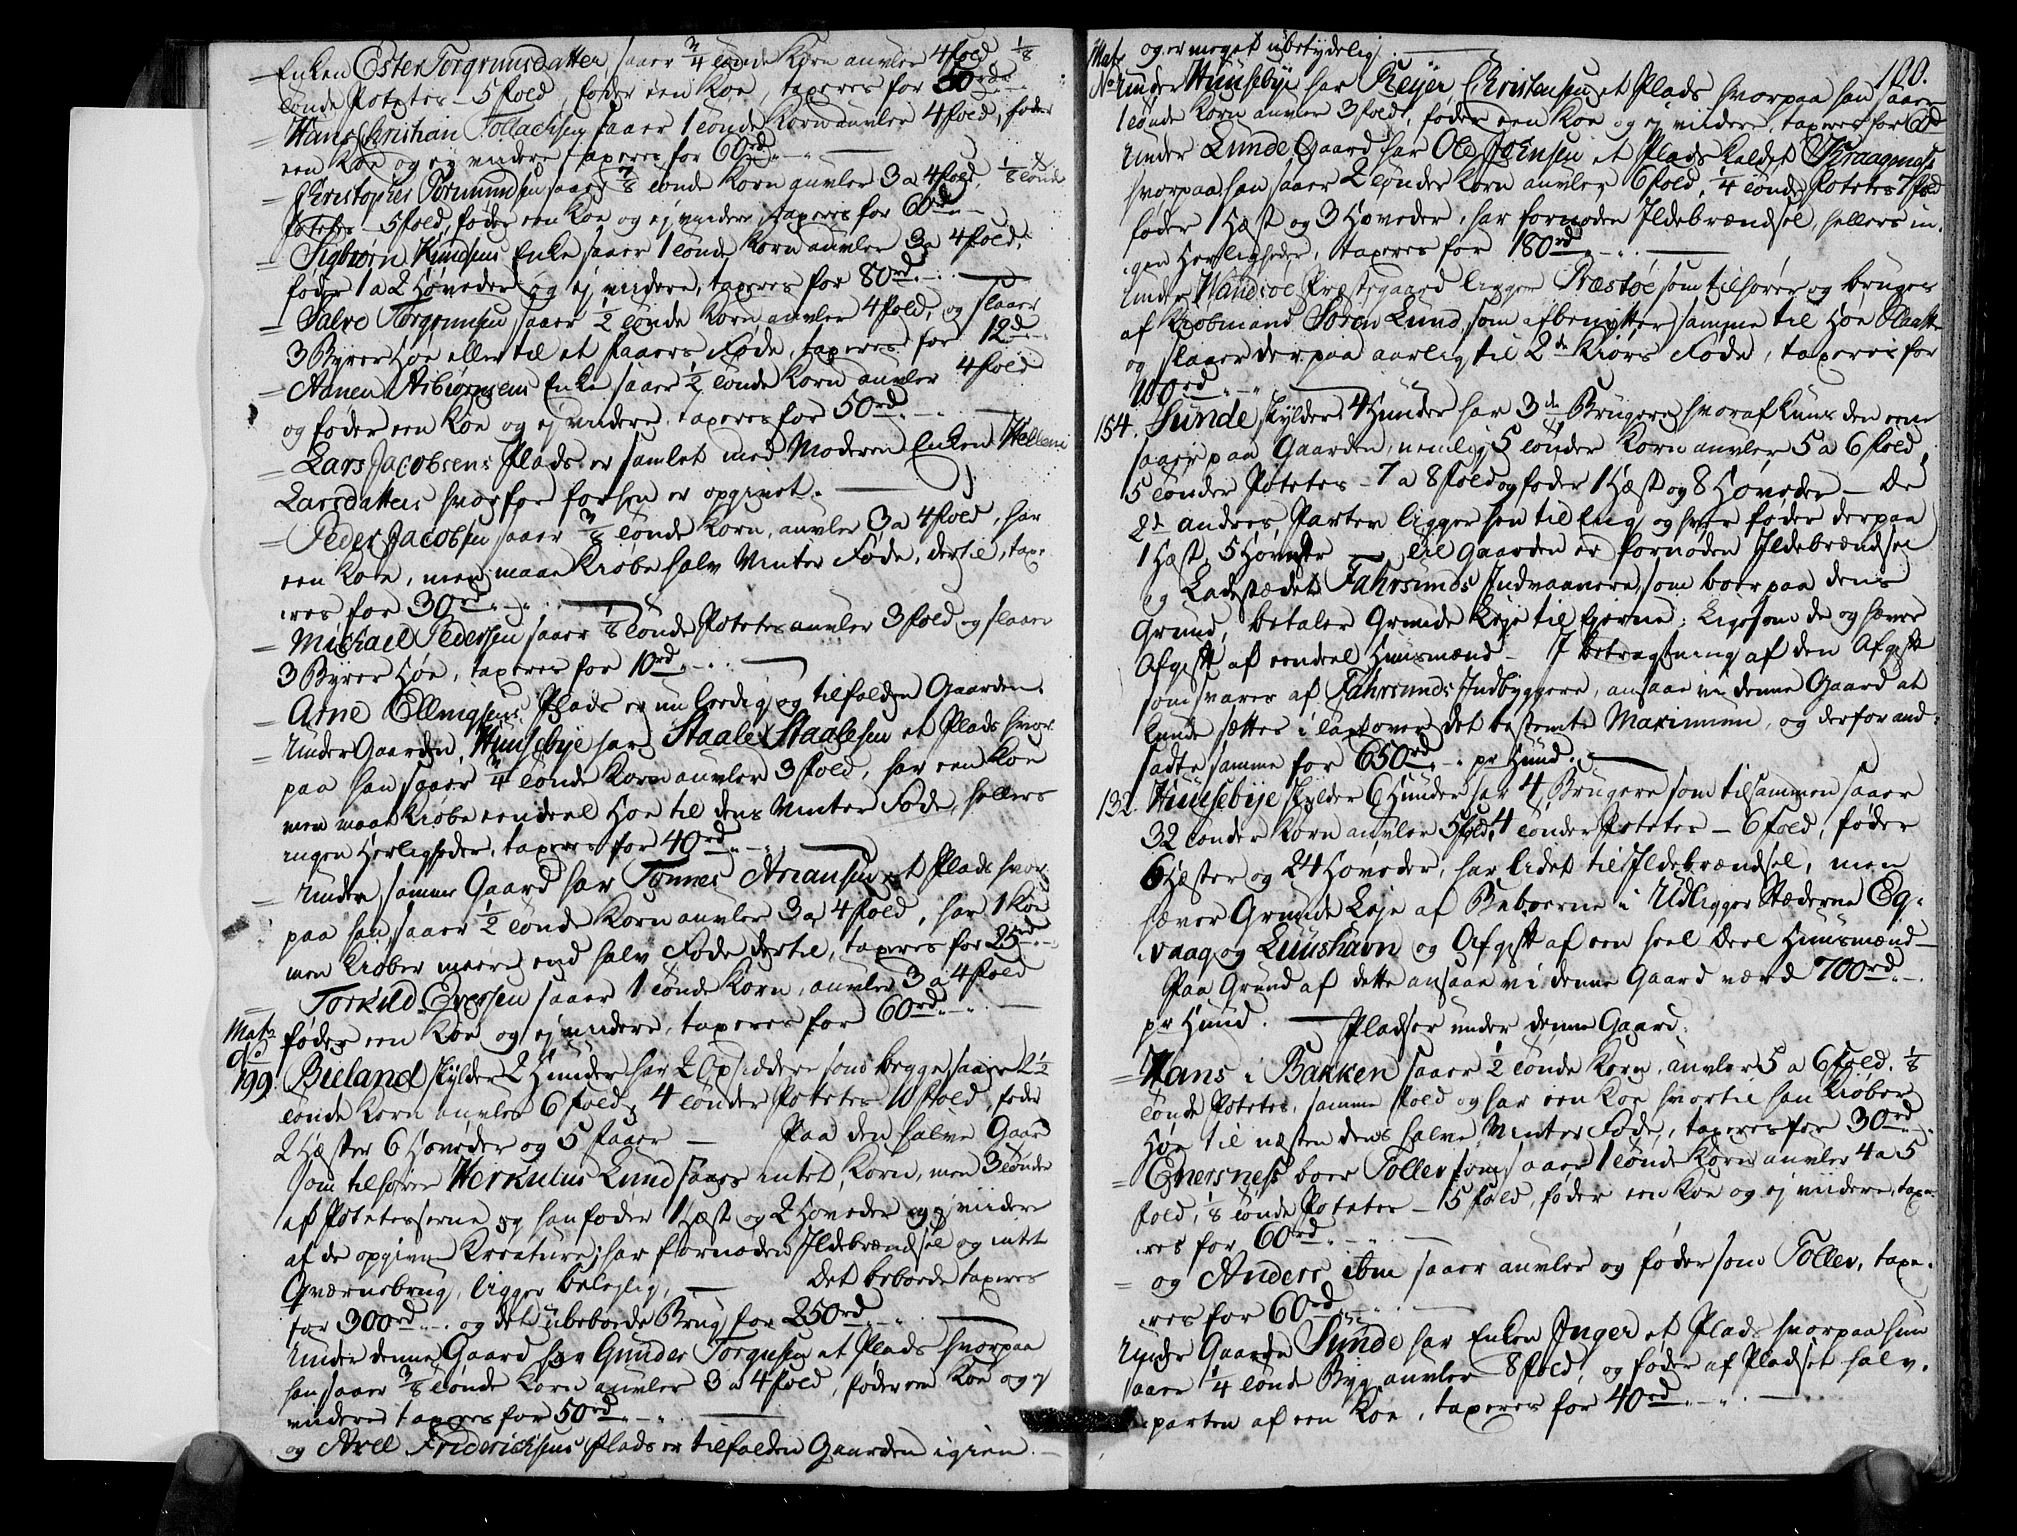 Enken Ester Torgrimsdatter saaer 3/4 tønde Korn auvler 4 fold 1/8
tønde Potetes - 5 fold, føder een Koe, taxeres for 50rd
= Hans Christian Tollachsen saaer 1 tønde Korn auvler 4 fold, føder
een Koe og ej viidere taxeres for 60rd
= Christopher Tormundsen saaer 7/8 tønde Korn auvler 3 a 4 fold, 1/8 tønde
Potetes - 5 fold, føder een Koe og ej viidere taxeres for 60rd
= Sigbiørn Knudsens Enke saaer 1 tønde Korn auvler 3 a 4 fold,
føder 1 a 2 Høveder og ej viidere, taxeres for 80rd
= Salve Torgrimsen saaer 1/2 tønde Korn auvler 4 fold, og slaaer
3 Byrer Høe eller til et faaers Føde, taxeres for 12d
= Aanen Asbiørnsens Enke saaer 1/2 tønde Korn auvler 4 fold
og føder een Koe og ej viidere, taxeres for 50rd
= Lars Jacobsens Plads er samlet med Moderen Enken Helleni
Larsdatters hvorfor forhen er opgivet.
= Peder Jacobsen saaer 3/8 tønde Korn, auvler 3 a 4 fold, har
een Koe, men maae kiøbe halv Vinter Føde, dertil, taxe-
res for 30rd
= Michael Pedersen saaer 1/8 tønde Potetes auvler 3 fold og slaaer
3 Byrer Høe, taxeres for 10rd
= Arne Ellingsens Plads er nu leedig og tilfalden Gaarden.
= Under Gaarden Huusebye har Staale Staalesen et Plads hvor-
paa han saaer 3/4 tønde Korn auvler 3 fold, har een Koe
men maae kiøbe eendeel Høe til dens Vinter Føde, hellers
ingen Herligheder, taxeres for 40rd
= Under samme Gaard har Tønnes Ariansen et Plads hvor-
paa han saaer 1/2 tønde Korn auvler 3 a 4 fold, har 1 Koe
men kiøber meere end halv Føde dertil, taxeres for 25rd
= Torkild Eversen saaer 1 tønde Korn, auvler 3 a 4 fold
føder een Koe og ej viidere, taxeres for 60rd
Mat:
No
199. Bieland skylder 2 Hunder har 2 Opsiddere som begge saaer 2 1/2
tønde Korn auvler 6 fold, 4 tønder Potetes 10 fold, føder
2 Hæster 6 Høveder og 5 faaer - Paa den halve Gaard
som tilhører Herkulus Lund saaes intet Korn, men 3 tønder
af Potetesserne og han føder 1 Hæst og 2 Høveder og ej viidere
af de opgivne Kreature, har fornøden Ildebrændsel og intet
Qværnebrug, ligger beleylig, - det beboede taxeres
for 300rd og det ubeboede Brug for 250rd
Under denne Gaard har Gunder Torgusen et Plads hvorpaa
han saaer 3/8 tønde Korn auvler 3 a 4 fold, føder een Koe og ej
viidere taxeres for 50rd
og Axel Friderichsens Plads er tilfalden Gaarden igien.
og er meget ubetydelig.
100.
Mat:
No Under Huusebye har Reyer Christensen et Plads hvorpaa han saaer
1 tønde Korn auvler 3 fold, føder een Koe og ej viidere, taxeres for 60rd
Under Lunde Gaard har Ole Jørnsen et Plads kaldet Kraagenes
hvorpaa han saaer 2 tønder Korn auvler 6 fold, 1/4 tønde Potetes 7 fold
føder 1 Hæst og 3 Høveder, har fornøden Ildebrændsel, hellers in-
gen Herligheder, taxeres for 180rd
Under Wandsøe Præstegaard ligger Præstøe som tilhører og bruges
af Kiøbmand Søren Lund, som afbenytter samme til Høe Slaatte
og slaaer derpaa aarlig til 2de Kiørs Føde, taxeres for
100rd
154. Sunde skylder 4 Hunder har 3de Brugere hvoraf kuns den eene
saaer paa Gaarden, nemlig 5 tønder Korn auvler 5 a 6 fold,
5 tønder Potetes - 7 a 8 fold og føder 1 Hæst og 8 Høveder - De
2de andres Parter ligger hen til Eng og hver føder derpaa
1 Hæst 5 Høveder - Til Gaarden er fornøden Ildebrændsel
og Ladestædet Fahrsunds Indvaanere, som boer paa dens
Grund, betaler Grunde Leje til Ejerne; Ligesom de og hæver
Afgift af eendeel Huusmænd - I betragtning af den Afgift
som svares af Fahrsunds Indbyggere, ansaae vi denne Gaard at
kunde sættes i Taxt over det bestemte Maximum, og derfor and-
sadte samme for 650rd pr Hund.
132. Huusebye skylder 6 Hunder har 4 Brugere som tilsammen saaer
32 tønder Korn auvler 5 fold, 4 tønder Potetes - 6 fold, føder
6 Hæster og 24 Høveder, har lidet til Ildebrændsel, men
hæver Grunde Leje af Beboerne i Udligger Stæderne Eg-
vaag og Luushavn og Afgift af een heel Deel Huusmænd -
Paa Grund af dette ansaae vi denne Gaard værd 700rd
pr Hund. - Pladser under denne Gaard:
= Hans i Bakken saaer 1/2 tønde Korn, auvler 5 a 6 fold, 1/8
tønde Potetes, samme fold og har een Koe hvortil han kiøber
Høe til næsten dens halve Vinter Føde, taxeres for 30rd
= Enersness boer Tollev som saaer 1 tønde Korn auvler 4 a 5
fold, 1/8 tønde Potetes - 5 fold, føder een Koe og ej viidere, taxe-
res for 60rd
= og Anders ibm saaer auvler og føder som Tollev, taxe-
res for 60rd
Under Gaarden Sunde har Enken Inger et Plads hvorpaa hun
saaer 1/4 tønde Byg auvler 8 fold, og føder af Pladset halv-
parten af een Koe, taxeres for 40rd